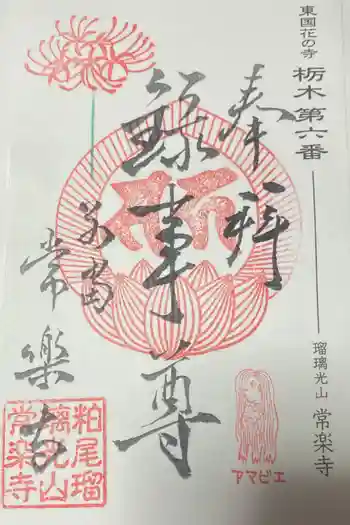 東国花の寺 栃木第六番
瑠璃光山 常楽寺
奉拝
録事尊
別当
常樂寺
粕尾瑠
璃光山
常楽寺
アマビエ